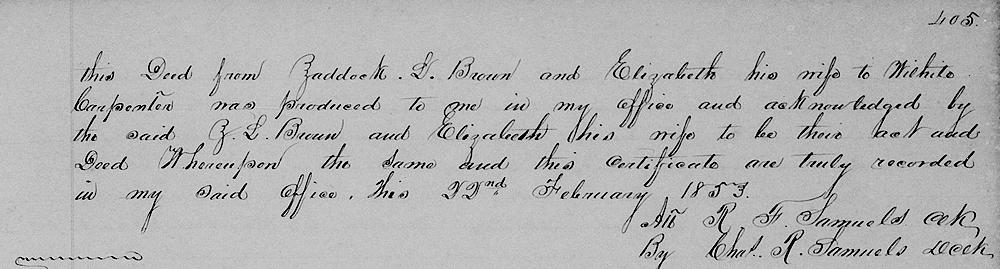 405.
this Deed from Zaddock. L. Brown and Elizabeth his wife to Wilhite
Carpenter was produced to me in my office and acknowledged by
the said Z. L. Brown and Elizabeth his wife to be their act and
Deed Whereupon the same and this certificate are truly recorded
in my said office, this 22nd February 1853.
Att R. F. Samuels CCK
By Chas. R. Samuels DCCK